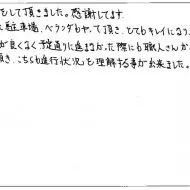 をして頂きました。感謝してます
駐車場、ベランダもやって頂き、とてもキレイになり
が良くなく予定通りに進まなかった際にも職人さんか
頂き、こちらも進行状況を理解する事が出来ました。